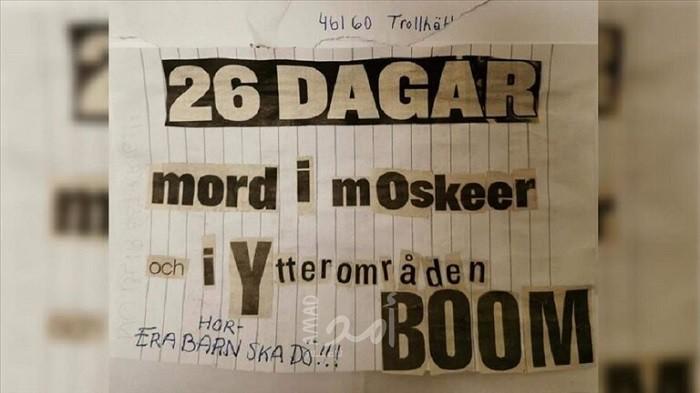 46160 Trollhätt
26 DAGAR
mord i mOskeer
och i Ytterområden
BOOM
HOR-
ERA BARN SKA DÖ!!!